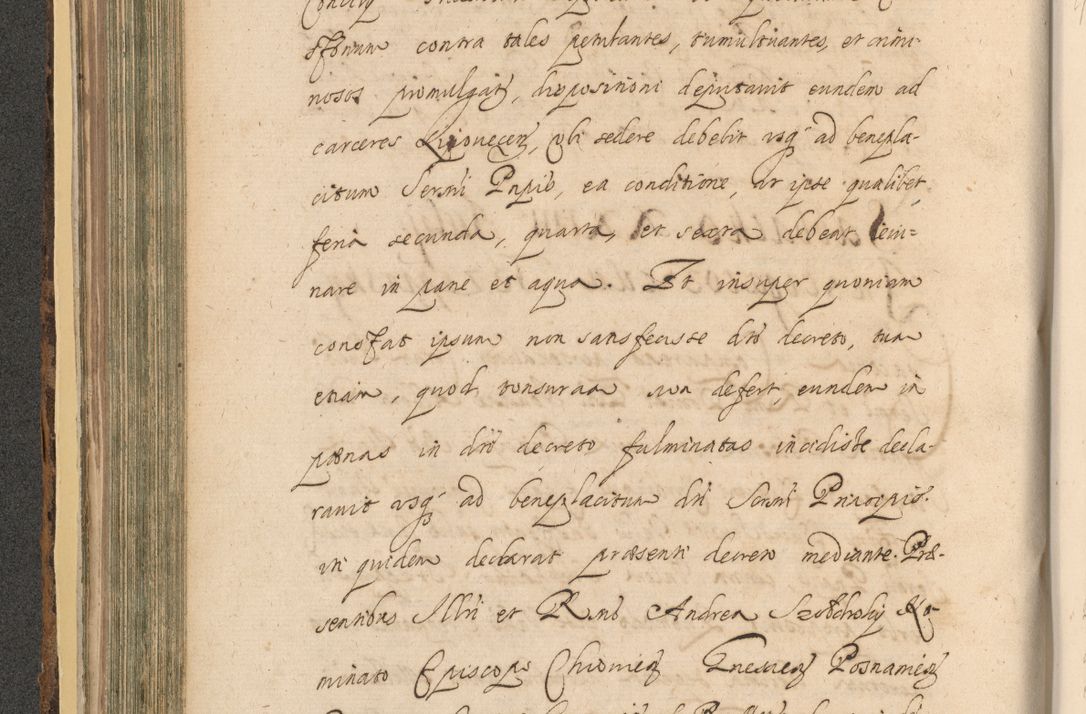 contra tales petulantes, tumultuantes, et crimi-
nosos promulgatȝ, dispositioni deputavit eundem ad
carceres Lipovecenȝ, Ubi sedere debebit usqȝ ad benepla-
citum Sermi Pnpis, ea conditione, ut ipse qualibet
feria secunda, quarta, et sexta debeat ieiu-
nare in pane et aqua. Et insuper quoniam
constat ipsum non satisfecisse dto decreto, tum
etiam, quod tonsuram non defert, eundem in
pœnas in dto decreto fulminatas incidisse decla-
ravit usqȝ ad beneplacitum dti Sermi Principis.
uti quidem declarat præsenti decreto mediante. Præ-
sentibus Illri et Rmd Andrea Szołdrsky No-
minato Episcopo Chiovienȝ Gnesnenȝ Posnanienȝ